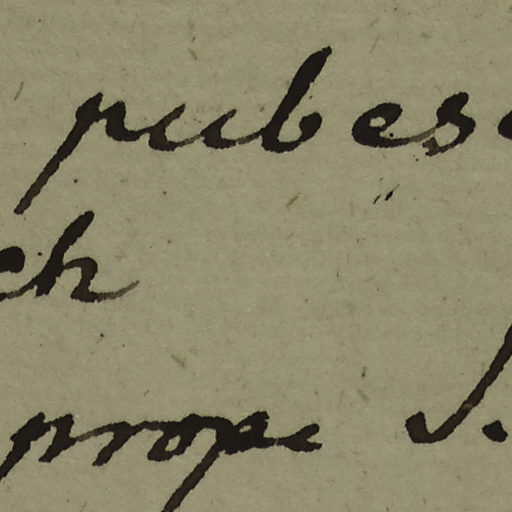 pubes
ch
prope S.